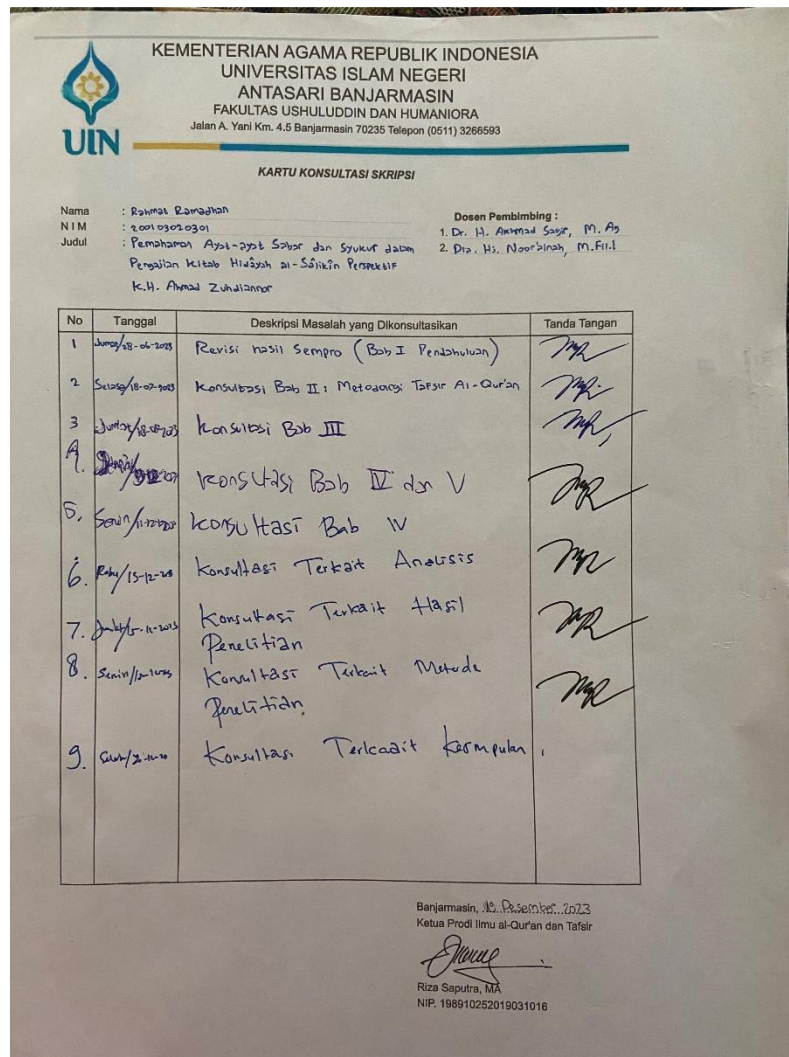 KEMENTERIAN AGAMA REPUBLIK INDONESIA
UNIVERSITAS ISLAM NEGERI
ANTASARI BANJARMASIN
FAKULTAS USHULUDDIN DAN HUMANIORA
Jalan A. Yani Km. 4.5 Banjarmasin 70235 Telepon (0511) 3266593
UIN
KARTU KONSULTASI SKRIPSI
Nama : Rahmat Ramadhan
NIM : 200103020301
Judul : Pemahaman Ayat-ayat Sabar dan Syukur dalam
Pengajian Kitab Hidâyah al-Sâlikîn Perspektif
K.H. Ahmad Zuhdiannor
Dosen Pembimbing :
1. Dr. H. Akhmad Sagir, M. Ag
2. Dra. Hj. Noor'ainah, M.Fil.I
No Tanggal Deskripsi Masalah yang Dikonsultasikan Tanda Tangan
1 Revisi hasil Sempro (Bab I Pendahuluan)
2 Konsultasi Bab II: Tafsir Al-Qur'an
3 Konsultasi Bab III
Konsultasi Bab IV dan V
5. Konsultasi Bab IV
6. Rabu/13-12-23 Konsultasi Terkait Analisis
7. Konsultasi Terkait Hasil
Penelitian
8. Senin/ Konsultasi Terkait Metode
Penelitian
9. Konsultasi
Banjarmasin, Desember 2023
Ketua Prodi Ilmu al-Qur'an dan Tafsir
Riza Saputra, MA
NIP. 198910252019031016